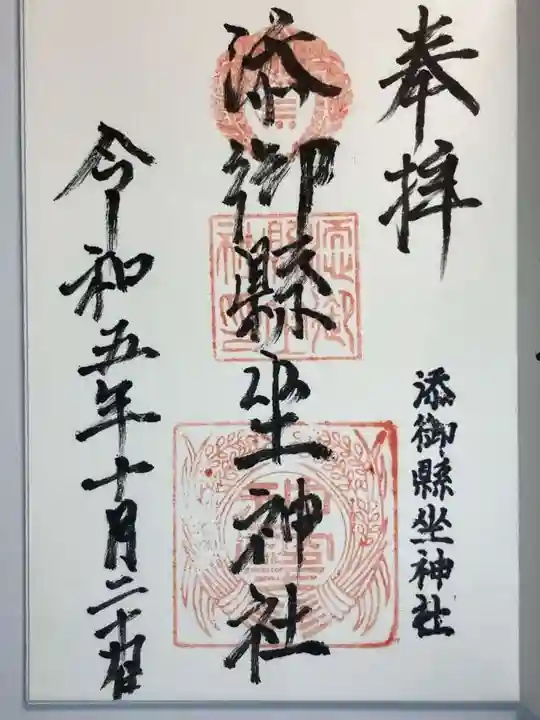 奉拝
添御縣坐神社
添御縣坐神社
令和五年十月二十